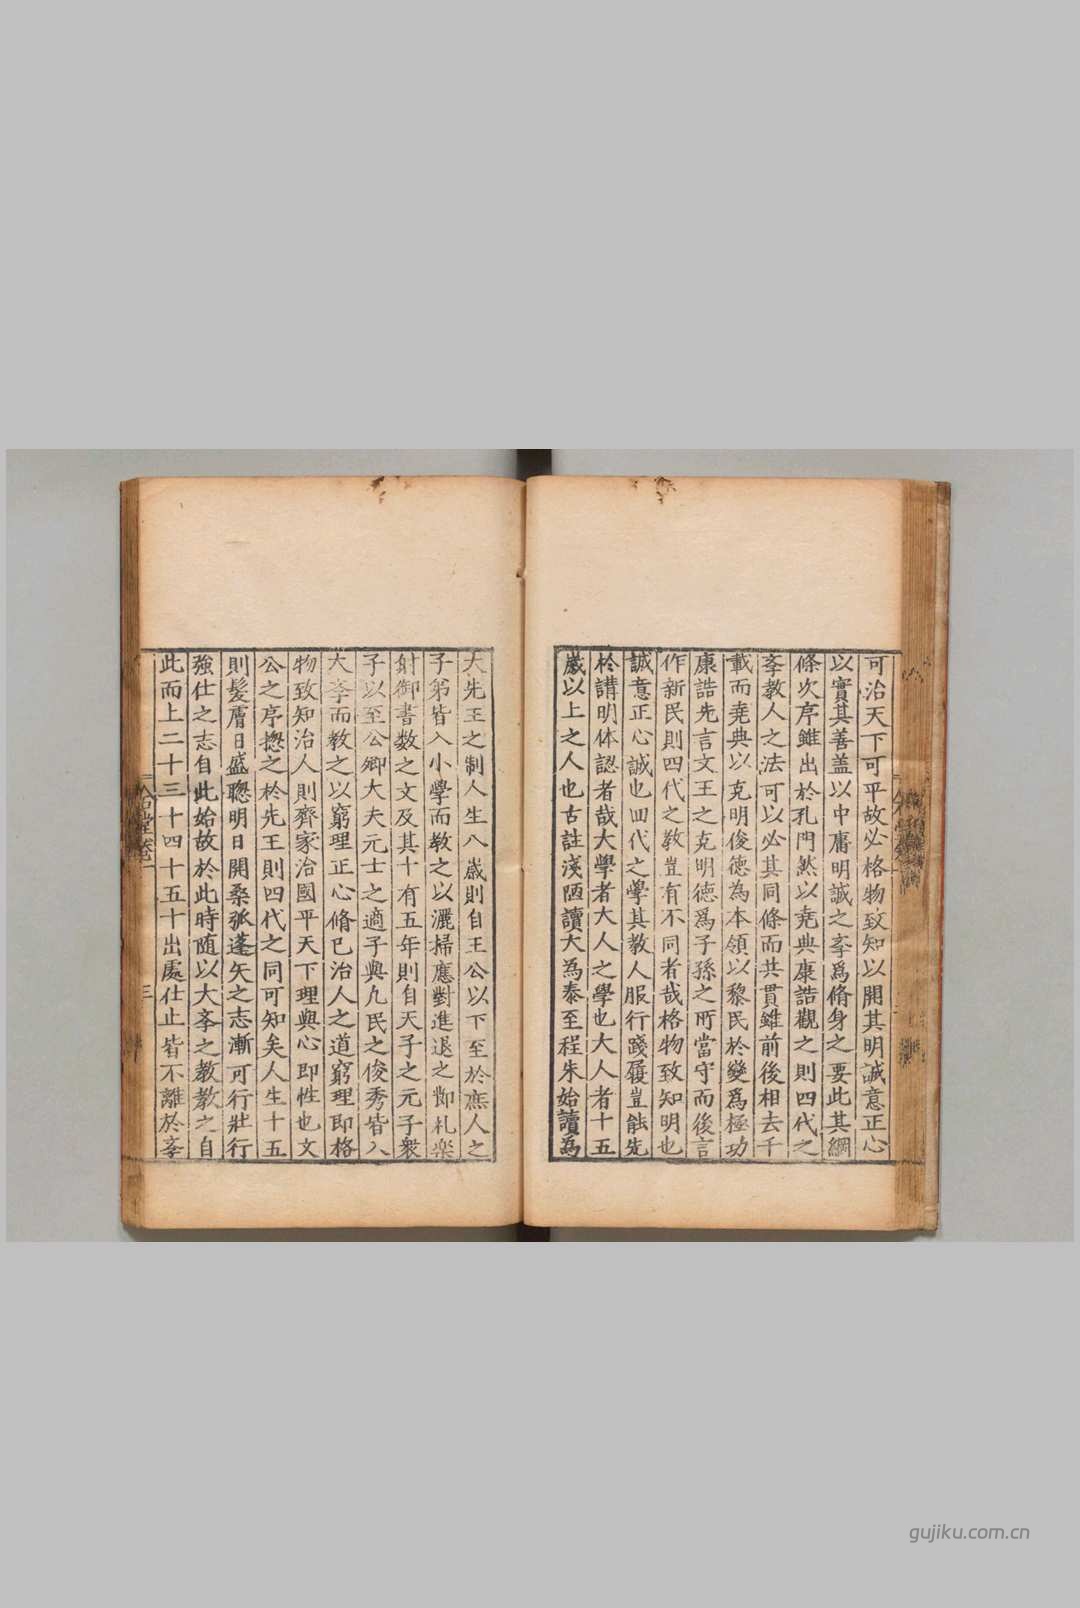 可治天下可平故必格物致知以開其明誠意正心
以實其善盖以中庸明誠之斈爲脩身之要此其綱
條次序雖出於孔門然以堯典康誥觀之則四代之
斈教人之法可以必其同條而共貫雖前後相去千
載而堯典以克明俊德為本領以黎民於變爲極功
康誥先言文王之克明德爲子孫之所當守而後言
作新民則四代之教豈有不同者哉格物致知明也
誠意正心誠也四代之學其教人服行踐履豈能先
於講明体認者哉大學者大人之學也大人者十五
歲以上之人也古註淺陋讀大為泰至程朱始讀為
大先王之制人生八歲則自王公以下至於庶人之
子弟皆入小學而教之以灑掃應對進退之節礼楽
射御書数之文及其十有五年則自天子之元子衆
子以至公卿大夫元士之適子與凡民之俊秀皆入
大斈而教之以窮理正心脩已治人之道窮理即格
物致知治人則齊家治國平天下理與心即性也文
公之序揔之於先王則四代之同可知矣人生十五
則髮膚日盛聰明日開桑弧蓬矢之志漸可行壯行
強仕之志自此始故於此時随以大斈之教教之自
此而上二十三十四十五十出處仕止皆不離於斈
三
gujiku.com.cn